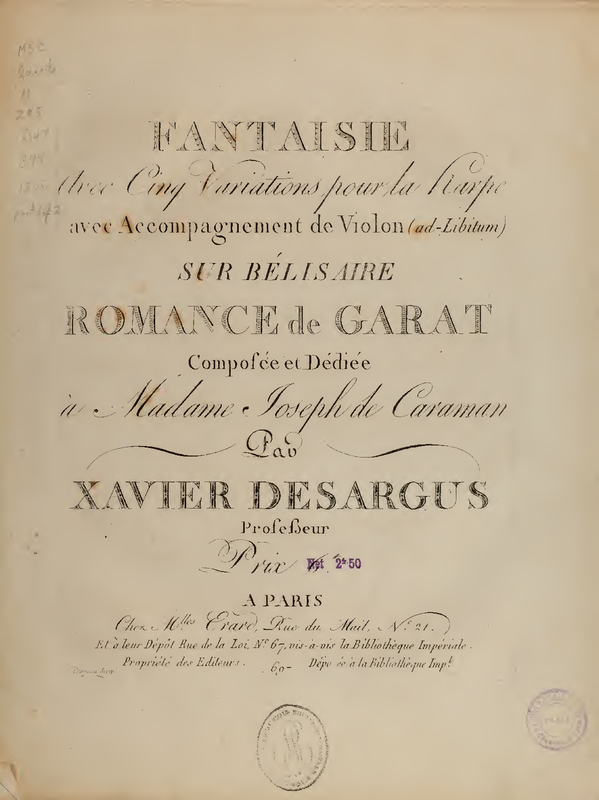 FANTAISIE
Avec Cinq Variations pour la Harpe
avec Accompagnement de Violon (ad-Libitum)
SUR BÉLISAIRE
ROMANCE de GARAT
Composée et Dédiée
à Madame Joseph de Caraman
Par
XAVIER DESARGUS
Professeur
Prix Net 2f 50
A PARIS
Chez Melles Erard, Rue du Mail, No. 21.
Et à leur Dépôt Rue de la Loi, No 67, vis-à-vis la Bibliothèque Impériale.
Propriété des Editeurs. 690- Dépo ée à la Bibliothèque Imple